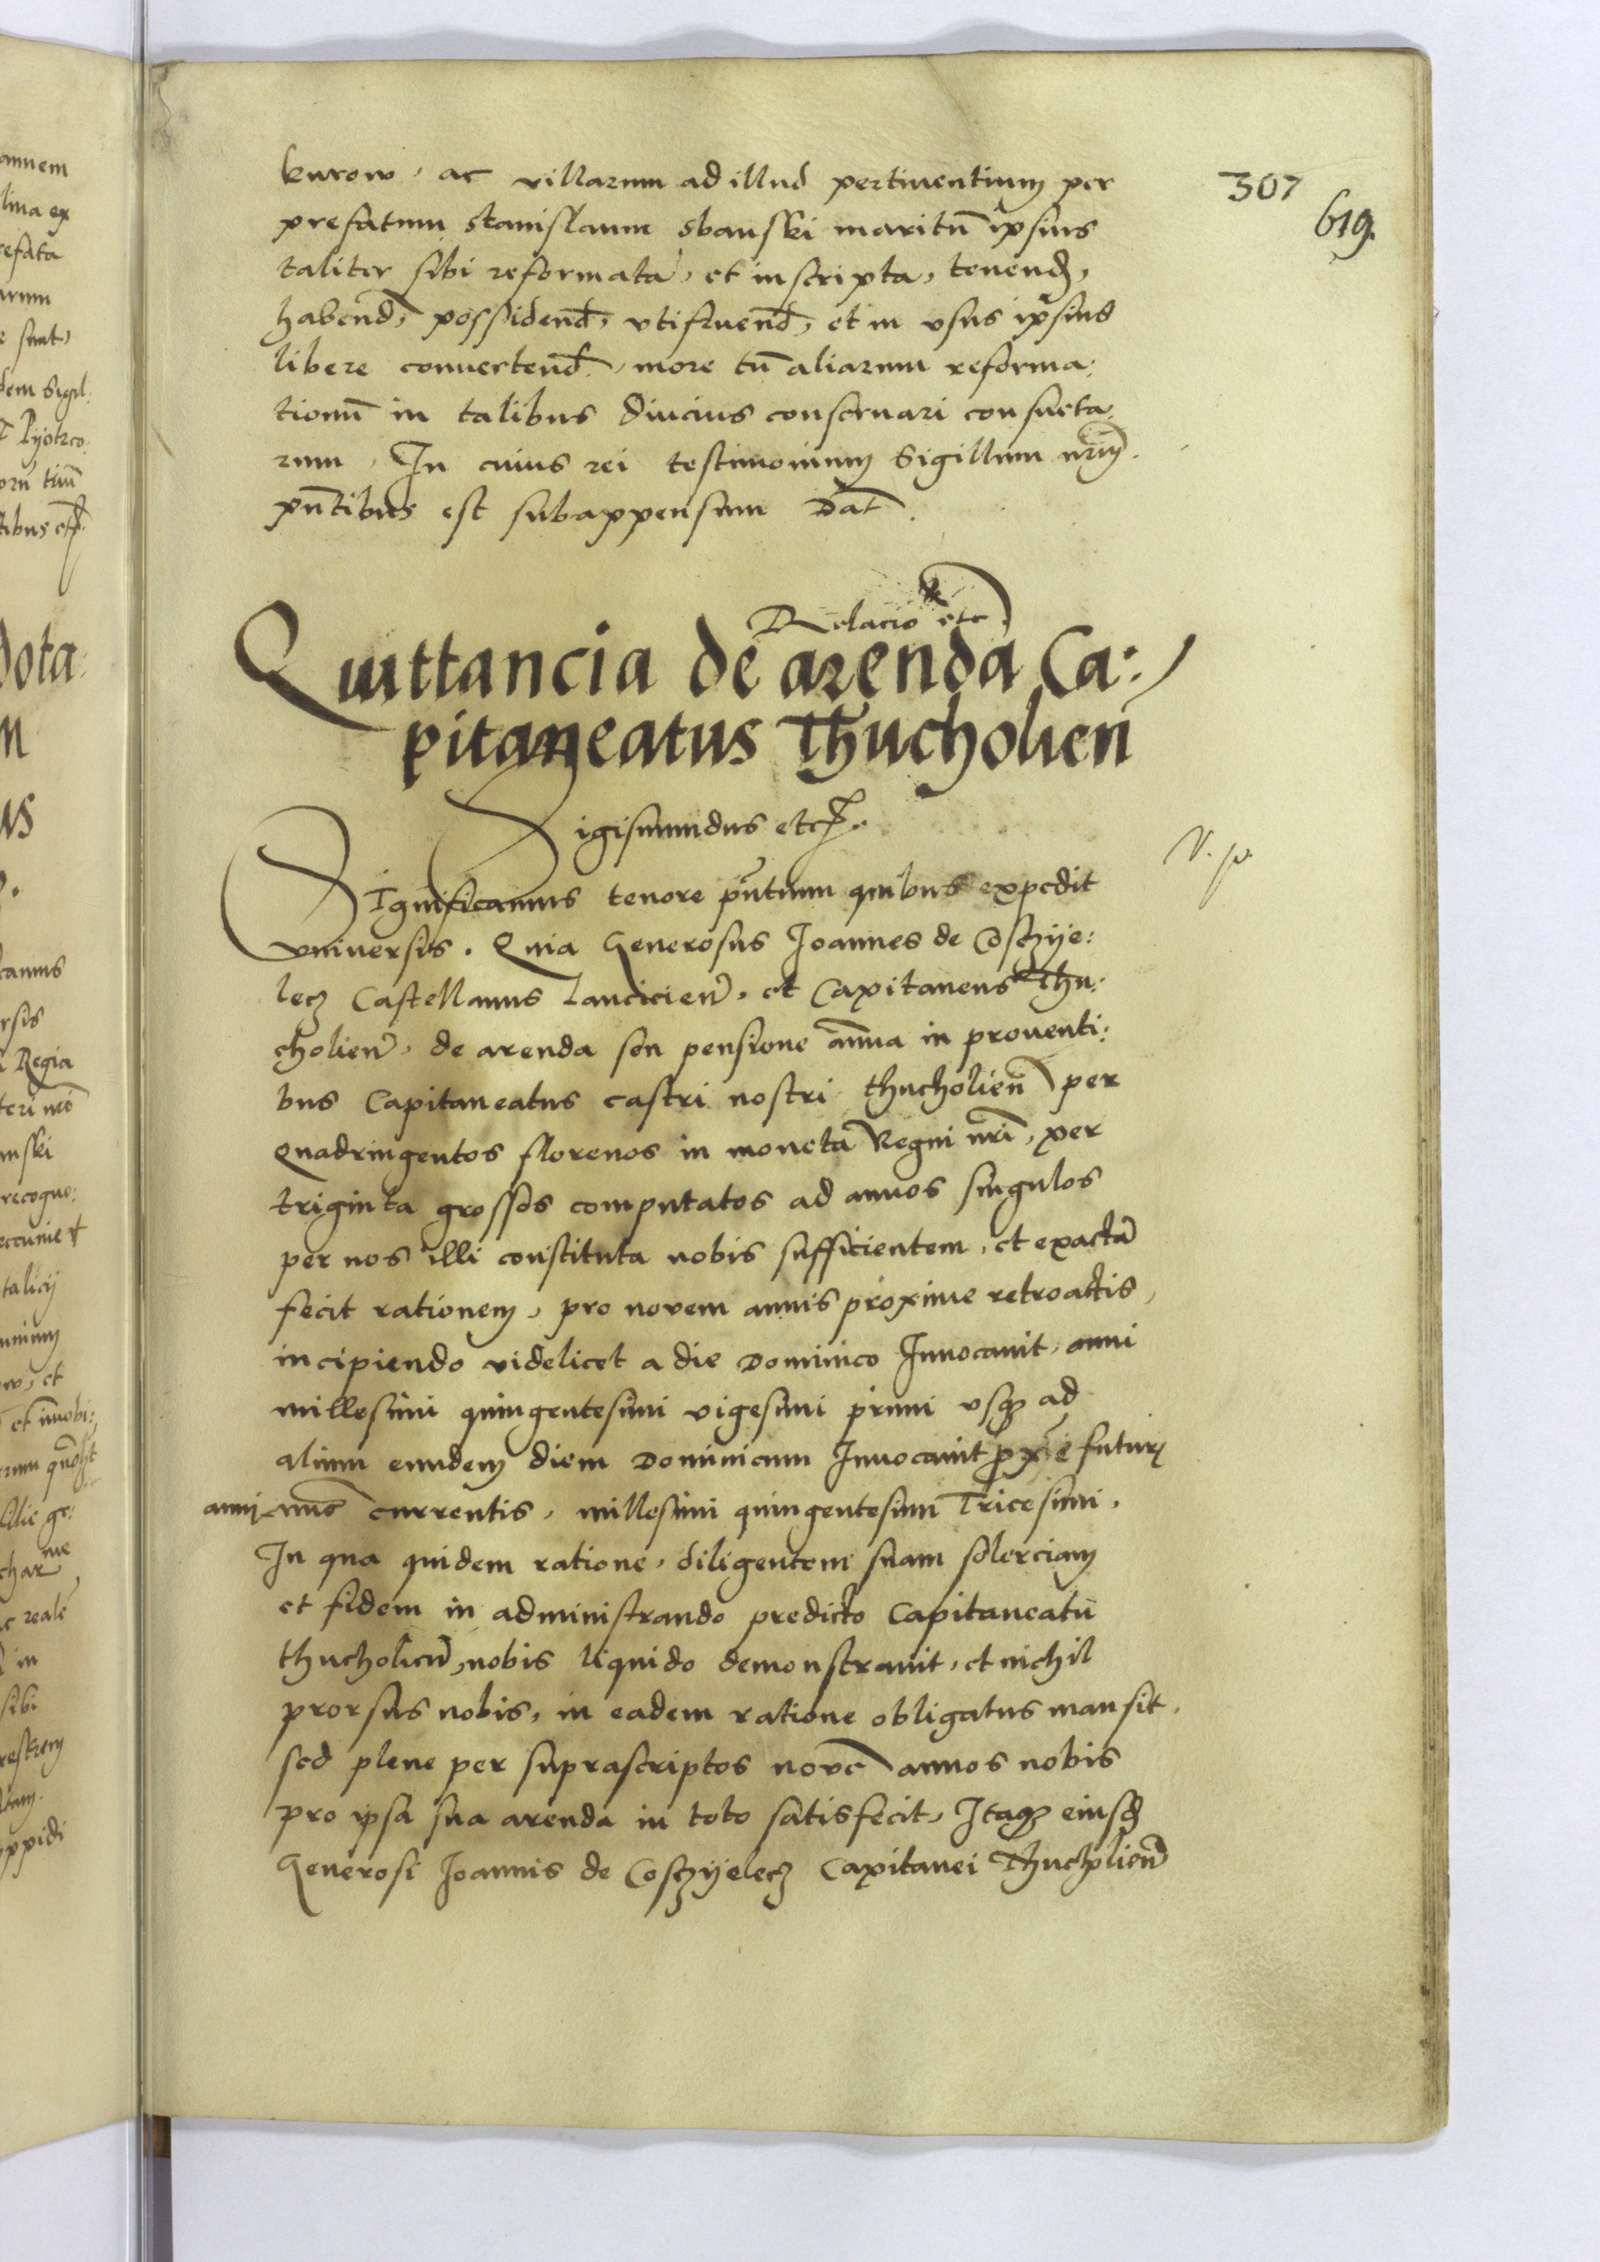 307
619.
kurow, ac villarum ad illud pertinentium per
prefatum Stanislaum Sbanski maritū ipsius
taliter sibi reformata, et inscripta, tenend,
habend, possidend, vtifruend, et in vsus ipsius
libere conuertend, more tn̄ aliarum reforma:
tionū in talibus diucius conseruari consueta
rum. In cuius rei testimonium Sigillum nrm̄.
pn̄tibus est subappensum Dat̄.
Relacio etc
Quittancia de arenda Ca:
pitaneatus Thucholien̄
Sigismundus etc.
Significamus tenore pn̄tium quibus expedit
vniuersis. Quia Generosus Joannes de Cosczye:
lecz Castellanus Lancicien̄. et Capitaneus Thu:
cholien̄. de arenda seu pensione annua in prouenti:
bus Capitaneatus castri nostri thucholien̄ per
Quadringentos florenos in moneta Regni nr̄i, per
triginta grossos computatos ad annos singulos
per nos illi constituta nobis sufficientem, et exactā
fecit rationem, pro novem annis proxime retroactis,
incipiendo videlicet a die Dominico Inuocauit, anni
millesimi quingentesimi vigesimi primi vsq ad
alium eundem diem Dominicum Inuocauit prox̄e futurj
annj nūc currentis, millesimi quingentesimi Tricesimi.
In qua quidem ratione, diligentem suam solerciam
et fidem in administrando predicto Capitaneatu
thucholien̄, nobis liquido demonstrauit, et nichil
prorsus nobis, in eadem ratione obligatus mansit.
sed plene per suprascriptos novē annos nobis
pro ipsa sua arenda in toto satisfecit, Itaq eiusd
Generosi Joannis de Cosczyelecz Capitanei Thucholien̄